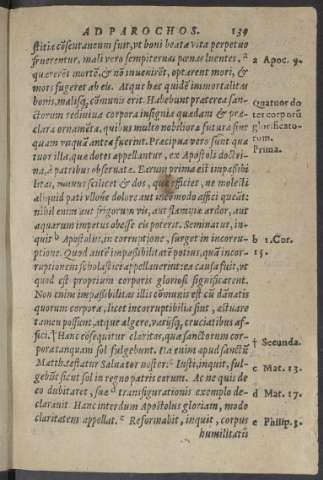 AD PAROCHOS. 139
stitiæ cōsentaneum fuit, vt boni beata vita perpetuo
fruerentur, mali vero sempiternas pœnas luentes, a
quærerēt mortē, & nō inuenirēt, optarent mori, &
mors fugeret ab eis. Atque hæc quidē immortalitas
bonis, malisq; cōmunis erit. Habebunt præterea san-
ctorum rediuiua corpora insignia quædam & præ-
clara ornamēta, quibus multo nobiliora futura sint
quam vnquā antea fuerint. Præcipua vero sunt qua
tuor illa, quæ dotes appellantur, ex Apostoli doctri-
na, à patribus obseruatæ. Earum prima est impassibi
litas, munus scilicet & dos, quæ efficiet, ne molesti
aliquid pati vlloue dolore aut incōmodo affici queāt:
nihil enim aut frigorum vis, aut flammæ ardor, aut
aquarum impetus obesse eis poterit. Seminatur, in-
quit b Apostolus, in corruptione, surget in incorru-
ptione. Quod autē impassibilitatē potius, quā incor-
ruptionem scholastici appellauerint: ea causa fuit, vt
quod est proprium corporis gloriosi significarent.
Non enim impassibilitas illis cōmunis est cū dānatis
quorum corpora, licet incorruptibilia sint, æstuare
tamen possunt, atque algere, varijsq; cruciatibus af-
fici. † Hanc cōsequitur claritas, quæ sanctorum cor-
pora tanquam sol fulgebunt. Ita enim apud sanctū
Matth. testatur Saluator noster. c Iusti, inquit, ful-
gebūt sicut sol in regno patris eorum. Ac ne quis de
eo dubitaret, suæ d transfigurationis exemplo de-
clarauit. Hanc interdum Apostolus gloriam, modo
claritatem appellat. e Reformabit, inquit, corpus
humilitatis
a Apoc. 9.
Quatuor do
tes corporū
glorificato-
rum.
Prima.
b 1. Cor.
15.
† Secunda.
c Mat. 13.
d Mat. 17.
e Philip. 3.